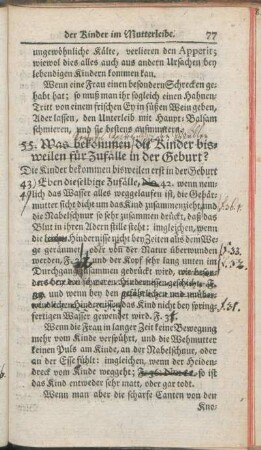 der Kinder im Mutterleibe. 77
ungewöhnliche Kälte, verlieren den Appetit;
wiewol dies alles auch aus andern Ursachen bey
lebendigen Kindern kommen kan.
Wenn eine Frau einen besondern Schrecken ge-
habt hat; so muß man ihr sogleich einen Hahnen-
Tritt von einem frischen Ey in süßen Wein geben,
Ader lassen, den Unterleib mit Haupt-Balsam
schmieren, und sie bestens aufmuntern.
55. Was bekommen die Kinder bis-
weilen für Zufälle in der Geburt?
Die Kinder bekommen bisweilen erst in der Geburt
43) Eben dieselbige Zufälle, 42. wenn nem-
lich das Wasser alles weggelaufen ist, die Gebär-
mutter sich dicht um das Kind zusammenziehet, und
die Nabelschnur so sehr zusammen drücket, daß das
Blut in ihren Adern stille stehet: imgleichen, wenn
die Hindernisse nicht bey Zeiten aus dem We-
ge geräumet, oder von der Natur überwunden
werden, F. und der Kopf sehr lang unten im
Durchgang zusammen gedrückt wird,
und wenn bey den
Hindernissen nicht bey spring-
fertigen Wasser gewendet wird. F.
Wenn die Frau in langer Zeit keine Bewegung
mehr vom Kinde verspühret, und die Wehmutter
keinen Puls am Kinde, an der Nabelschnur, oder
an der Esse fühlt: imgleichen, wenn der Heiden-
dreck vom Kinde weggehet; so ist
das Kind entweder sehr matt, oder gar todt.
Wenn man aber die scharfe Canten von den
Kno-